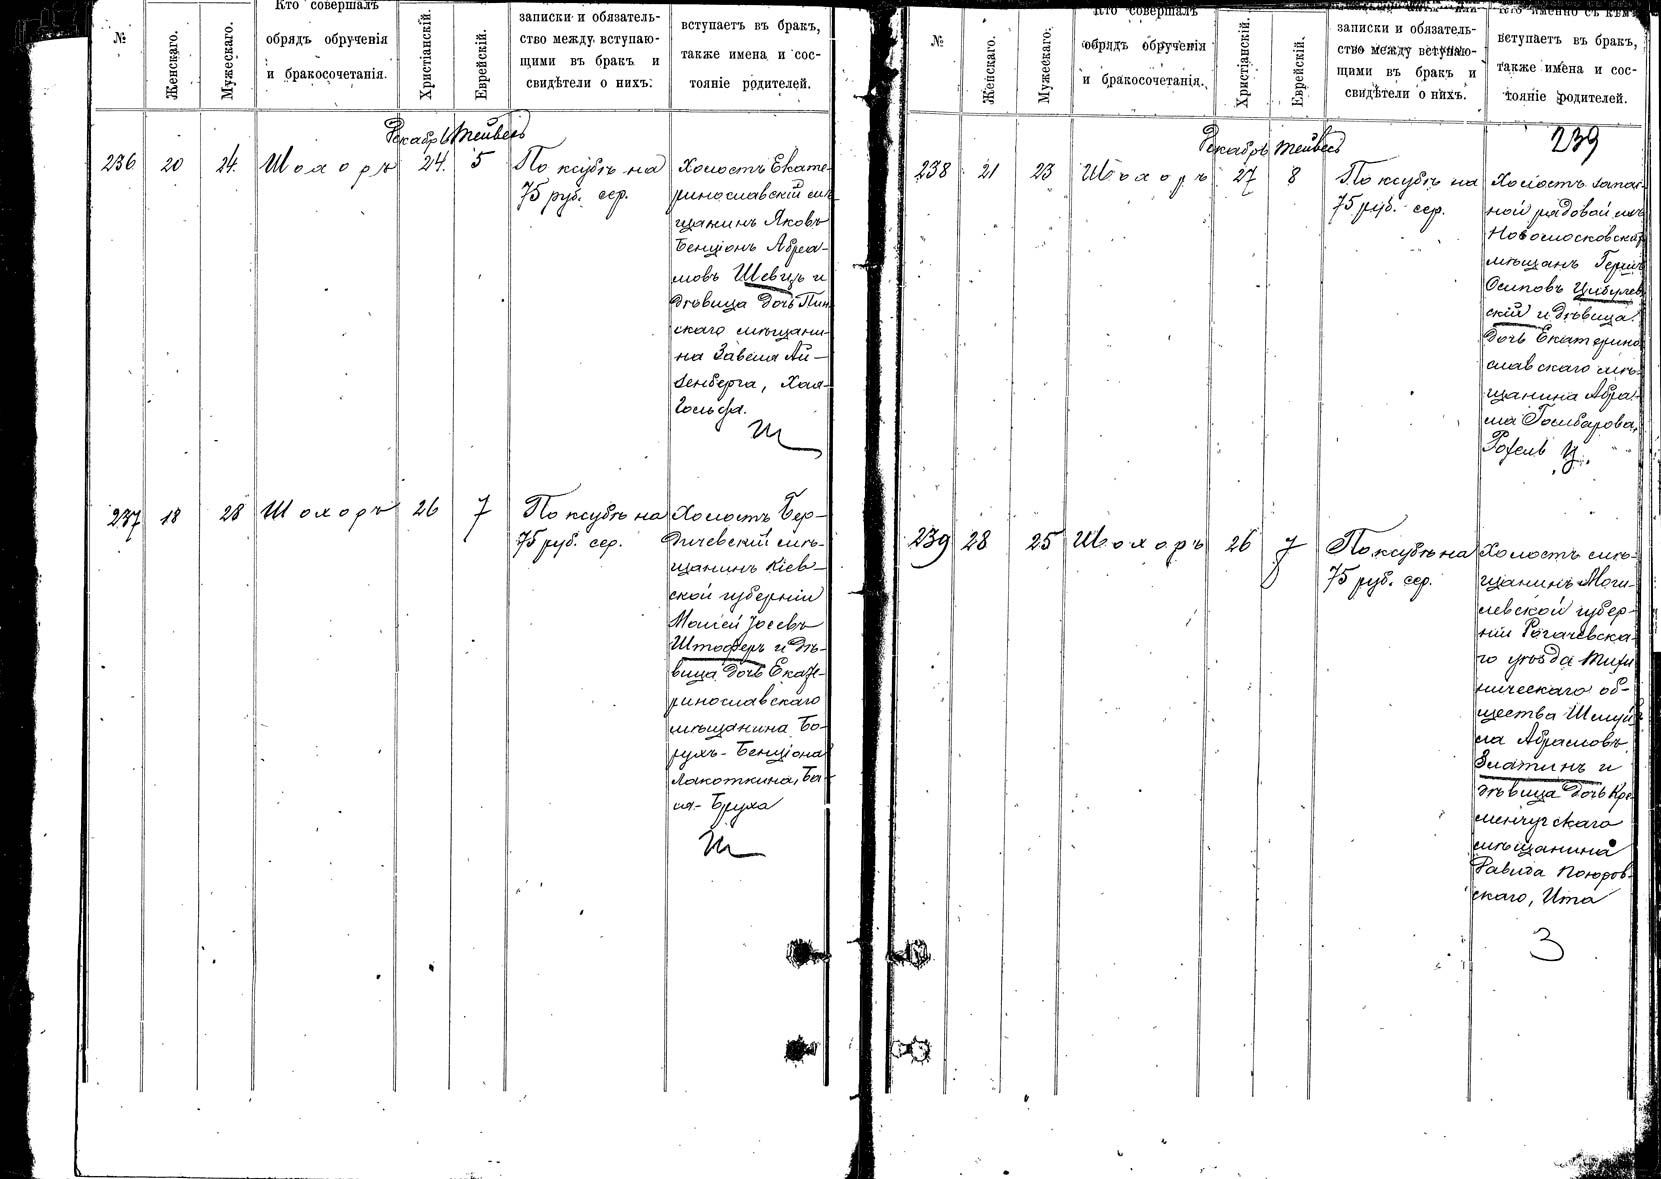 №
Женскаго.
Мужескаго.
Кто совершалъ
обрядъ обрученія
и бракосочетанія.
Христіанскій.
Еврейскій.
записки и обязатель-
ство между вступаю-
щими въ бракъ и
свидѣтели о нихъ.
вступаетъ въ бракъ,
также имена и сос-
тояніе родителей.
Декабрь Тейвесъ
236 20 24. Шохоръ 24. 5
По ксубѣ на
75 руб. сер.
Холостъ Екате-
ринославскій мѣ-
щанинъ Яковъ
Бенціонъ Абра-
мовъ Шевцъ и
дѣвица дочь Пин-
скаго мѣщани-
на Завеля Ай-
зенберга, Хая-
Гольда.
Ш
237 18 28 Шохоръ 26 7
По ксубѣ на
75 руб. сер.
Холостъ Бер-
дичевскій мѣ-
щанинъ Кіев-
ской губерніи
Моисей Іосевъ
Штоферъ и дѣ-
вица дочь Екате-
ринославскаго
мѣщанина Бо-
рухъ-Бенціона
Лакоткина, Ба-
ся-Бруха
Ш
№
Женскаго.
Мужескаго.
Кто совершалъ
обрядъ обрученія
и бракосочетанія.
Христіанскій.
Еврейскій.
записки и обязатель-
ство между вступаю-
щими въ бракъ и
свидѣтели о нихъ.
кто именно съ кѣмъ
вступаетъ въ бракъ,
также имена и сос-
тояніе родителей.
239
Декабрь Тейвесъ
238 21 23 Шохоръ 27 8
По ксубѣ на
75 руб. сер.
Холостъ запас-
ной рядовой изъ
Новомосковскихъ
мѣщанъ Гершъ
Осиповъ Цибулев-
скій и дѣвица
дочь Екатерино-
славскаго мѣ-
щанина Абра-
ма Гомбарова,
Рохель Ц.
239 28 25 Шохоръ 26 7
По ксубѣ на
75 руб. сер.
Холостъ мѣ-
щанинъ Моги-
левской губер-
ніи Рогачевска-
го уѣзда Тихи-
ническаго об-
щества Шмуй-
ла Абрамовъ
Златинъ и
дѣвица дочь Кре-
менчугскаго
мѣщанина
Давида
скаго, Ита
З